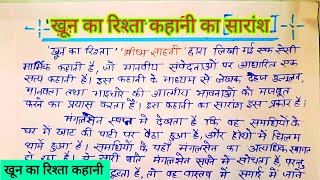 खून का रिश्ता कहानी का सारांश
खून का रिश्ता 'भीष्म साहनी' द्वारा लिखी गई एक ऐसी
मार्मिक कहानी है, जो मानवीय संवेदनाओं पर आधारित एक
सत्य कहानी है। इस कहानी के माध्यम से लेखक दहेज उन्मूलन,
मानवता तथा भाईचारे की आत्मीय भावनाओं को मजबूत
करने का प्रयास करता है। इस कहानी का सारांश इस प्रकार है।
मंगलसेन स्वप्न में देखता है कि वह समधियों के
घर में खाट की पाटी पर बैठा हुआ है, और हाथों में चिलम
थामे हुआ है। समधियों के यहाँ मंगलसेन का अत्यधिक सम्मान
मंगलसेन सपने में सोचता है, परन्तु
है, तो वह वास्तव में
खून का रिश्ता कहानी